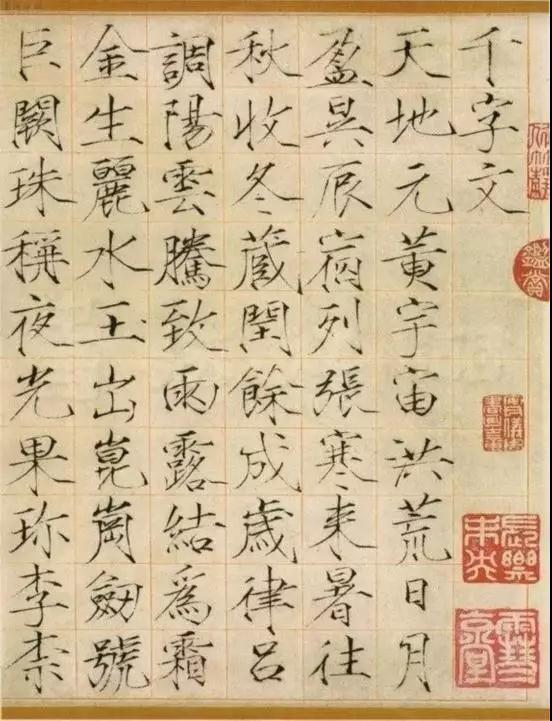 千字文
天地元黃宇宙洪荒日月
盈昃辰宿列張寒来暑往
秋收冬蔵閏餘成歲律呂
調陽雲騰致雨露結爲霜
金生麗水玉出崑崗劔號
巨闕珠稱夜光果珎李柰
鑑賞